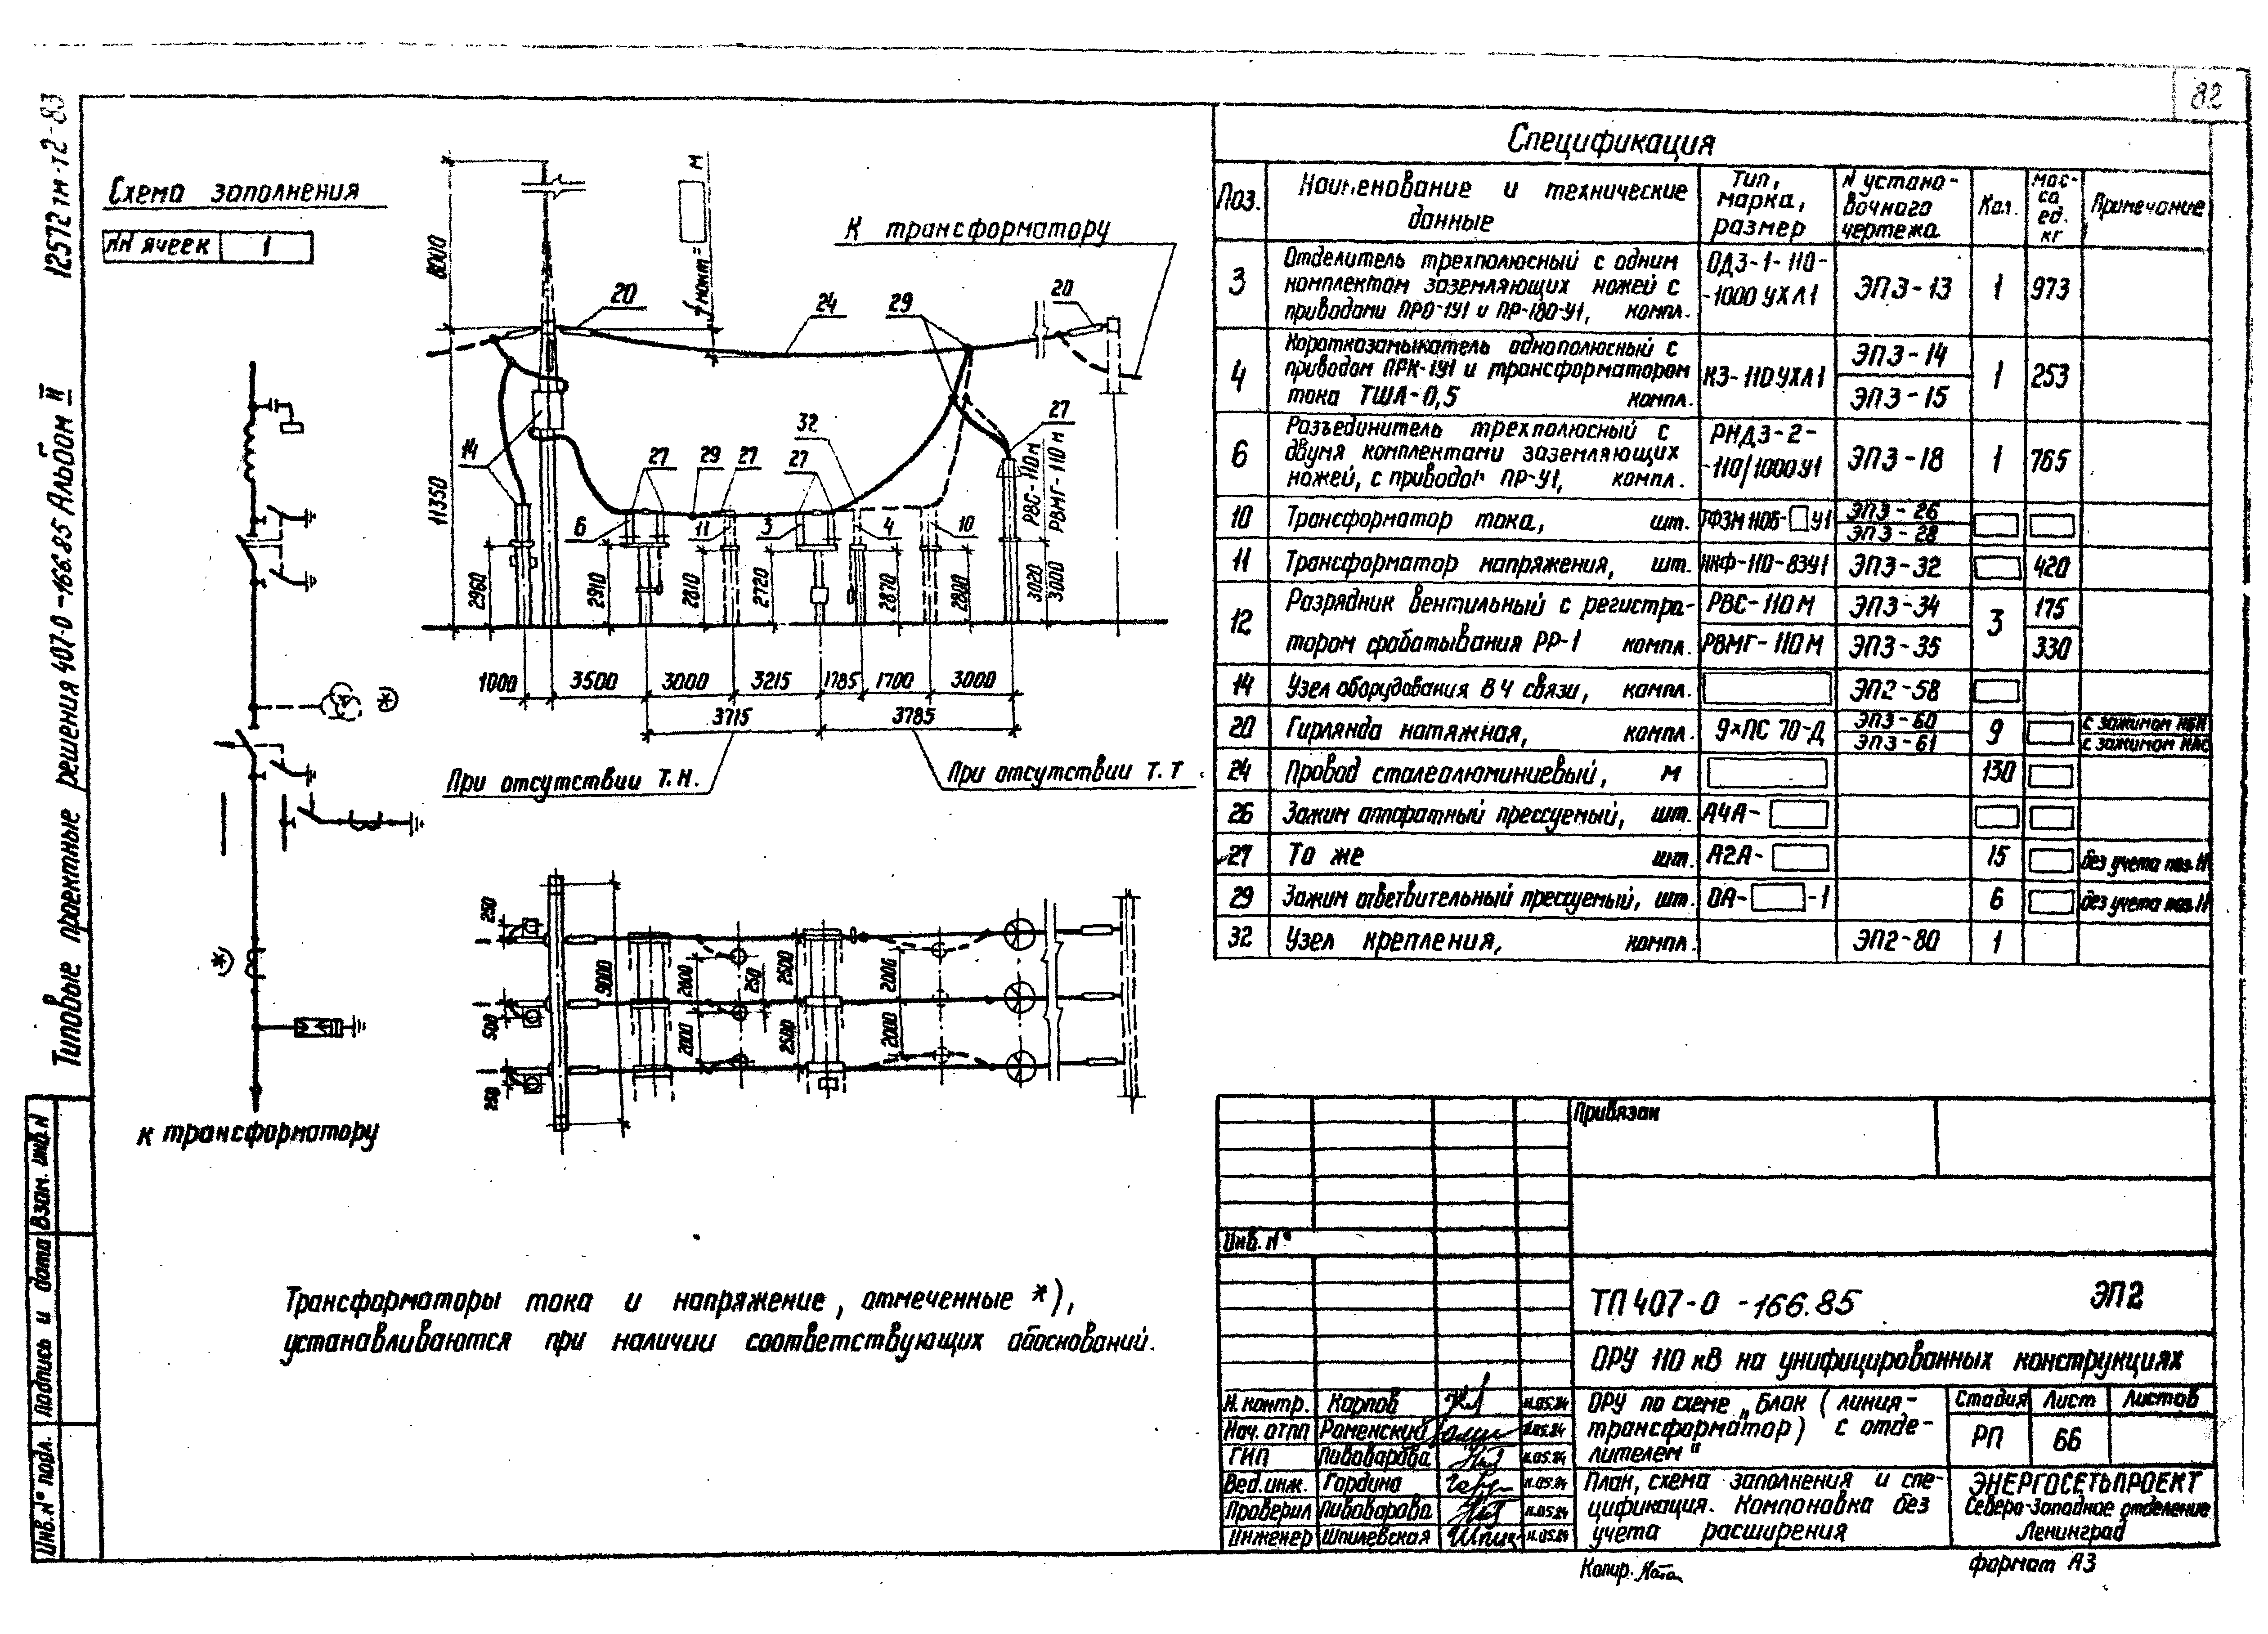 82
12572тм-т2-83
Типовые проектные решения 407-0-166.85 Альбом II
Схема заполнения
NN ячеек 1
*)
*)
к трансформатору
8000
11350
м
К трансформатору
20
24
29
20
14
27
29
27
32
27
27
6
11
3
4
10
РВС-110м
РВМГ-110м
2960
2910
2810
2720
2870
2800
3020
3000
1000 3500 3000 3215 1785 1700 3000
3715 3785
При отсутствии Т.Н.
При отсутствии Т.Т
250
500
250
9000
2000
2000
250
2500
2500
2000
2000
Трансформаторы тока и напряжение, отмеченные *),
устанавливаются при наличии соответствующих обоснований.
Спецификация
Поз. Наименование и технические данные Тип, марка, размер N устано-вочного чертежа Кол. мас-са ед. кг Примечание
3 Отделитель трехполюсный с одним комплектом заземляющих ножей с приводами ПРО-1У1 и ПР-180-У1, компл. ОДЗ-1-110--1000 УХЛ1 ЭП3-13 1 973
4 Короткозамыкатель однополюсный с приводом ПРК-1У1 и трансформатором тока ТШЛ-0,5 компл. КЗ-110УХЛ1 ЭП3-14 ЭП3-15 1 253
6 Разъединитель трехполюсный с двумя комплектами заземляющих ножей, с приводом ПР-У1, компл. РНДЗ-2--110/1000У1 ЭП3-18 1 765
10 Трансформатор тока, шт. ТФЗМ110Б- У1 ЭП3-26 ЭП3-28
11 Трансформатор напряжения, шт. НКФ-110-83У1 ЭП3-32 420
12 Разрядник вентильный с регистра-тором срабатывания РР-1 компл. РВС-110М РВМГ-110М ЭП3-34 ЭП3-35 3 175 330
14 Узел оборудования ВЧ связи, компл. ЭП2-58
20 Гирлянда натяжная, компл. 9×ПС 70-Д ЭП3-60 ЭП3-61 9 с зажимом НБН с зажимом НАС
24 Провод сталеалюминиевый, м 130
26 Зажим аппаратный прессуемый, шт. А4А-
27 То же шт. А2А- 15 без учета поз. 11
29 Зажим ответвительный прессуемый, шт. ОА- -1 6 без учета поз. 11
32 Узел крепления, компл. ЭП2-80 1
Привязан
Инв. N°
ТП 407-0-166.85 ЭП2
ОРУ 110 кВ на унифицированных конструкциях
Н. контр. Карпов 11.05.84
Нач. отпп Роменский 11.05.84
ГИП Пивоварова 11.05.84
Вед. инж. Гардина 11.05.84
Проверил Пивоварова 11.05.84
Инженер Шпилевская 11.05.84
ОРУ по схеме „Блок (линия-
трансформатор) с отде-
лителем"
Стадия Лист Листов
РП 66
План, схема заполнения и спе-
цификация. Компоновка без
учета расширения
ЭНЕРГОСЕТЬПРОЕКТ
Северо-Западное отделение
Ленинград
Копир.
формат А3
Инв. N° подл. Подпись и дата Взам. инв. N